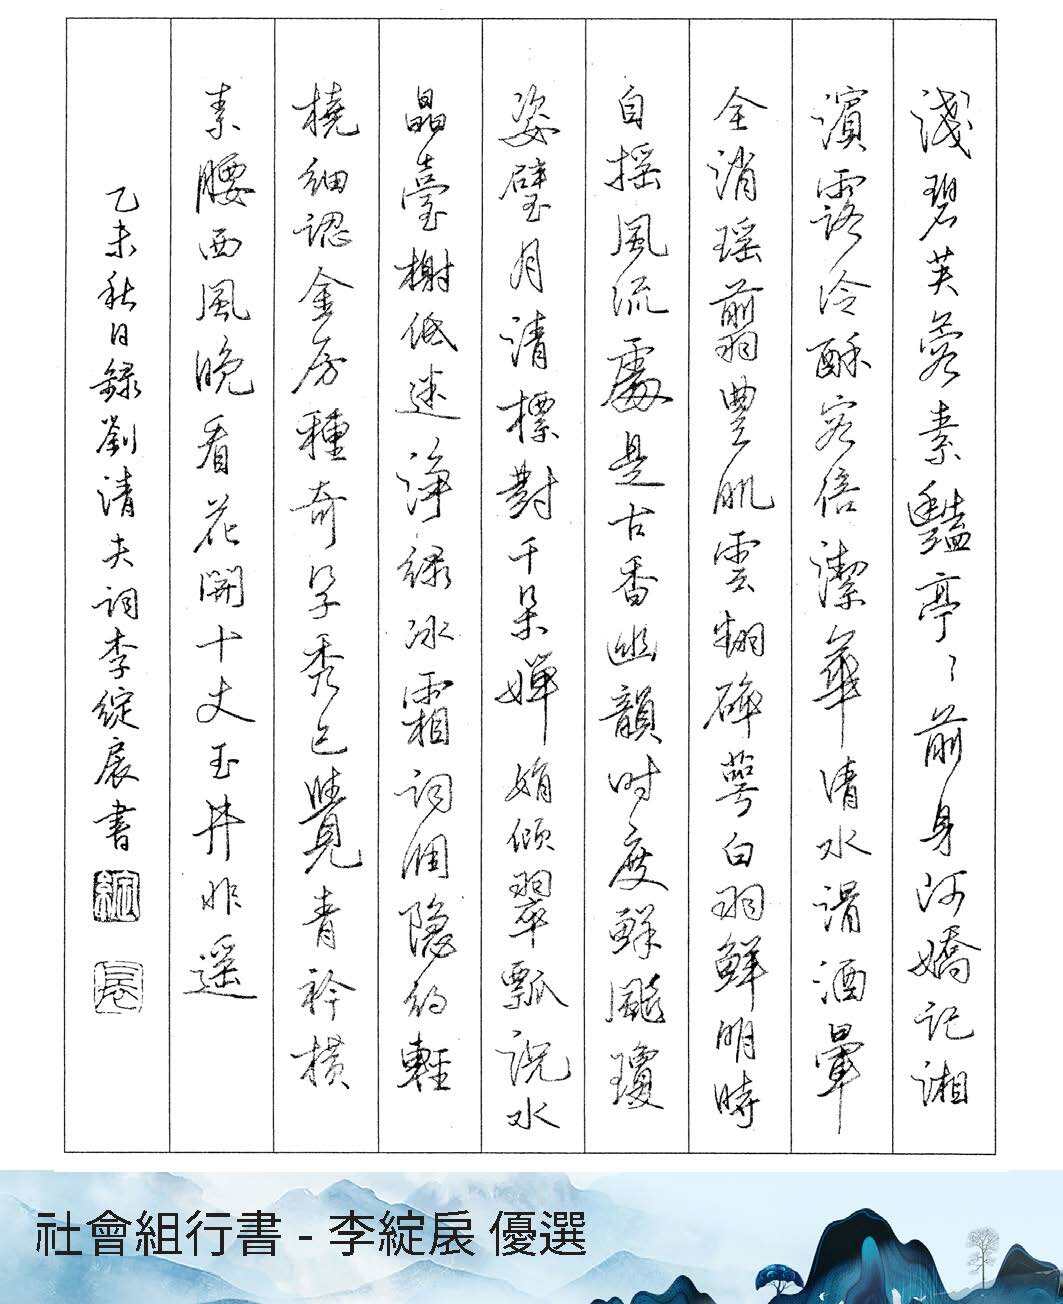 淺碧芙蓉素豔亭〻前身阿嬌記湘
濱露冷酥容倍潔華清水滑酒暈
全消瑶翦豐肌雲翻碎萼白羽鮮明時
自摇風流處是古香幽韻时度鮮飈瓊
姿璧月清標對千朵嬋娟傾翠瓢說水
晶臺榭低迷淨綠冰霜詞调隐約輕
橈細認金房種奇字秀已覺青衿横
素腰西風晚看花開十丈玉井非遥
乙未秋日録劉清夫詞李綻扆書
社會組行書 - 李綻扆 優選